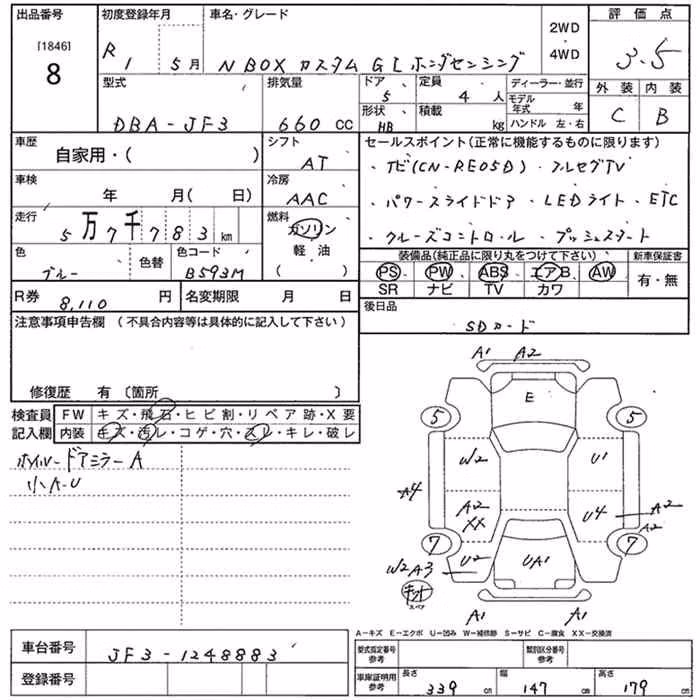 出品番号 初度登録年月 車名・グレード 2WD 評価点
[1846] 8 R1 5月 N BOX カスタム G L ホンダセンシング 4WD 3.5
型式 排気量 ドア 5 定員 4人 ディーラー・並行 外装 内装
DBA-JF3 660 CC 形状 HB 積載 kg モデル年式 年 ハンドル 左・右 C B
車歴 シフト セールスポイント(正常に機能するものに限ります)
自家用・( ) AT ・ナビ(CN-RE05D)・フルセグTV
車検 冷房
年 月( 日) AAC ・パワースライドドア ・LEDライト・ETC
走行 燃料
5万7千783km ガソリン ・クルーズコントロール・プッシュスタート
色 色替 色コード 軽油 装備品(純正品に限り丸をつけて下さい) 新車保証書
ブルー B593M ( ) PS PW ABS エアB AW 有・無
SR ナビ TV カワ
R券 8,110 円 名変期限 月 日 後日品
注意事項申告欄 (不具合内容等は具体的に記入して下さい) SDカード
修復歴 有 〔箇所 〕
検査員 FW キズ・飛石・ヒビ割・リペア跡・X要
記入欄 内装 キズ・汚レ・コゲ・穴・スレ・キレ・破レ
ホイル・ドアミラーA
小A-U
A1 A2
E
5 5
W2 U1
A4 A2 XX U4 A2
A2
7 7
W2A3 U2 UA1
キット
スペア
A1 A1
A-キズ E-エクボ U-凹み W-補修跡 S-サビ C-腐食 XX-交換済
車台番号 JF3-1248883 型式指定番号 参考 類別区分番号 参考
登録番号 車庫証明用 参考 長さ 339 cm 幅 147 cm 高さ 179 cm